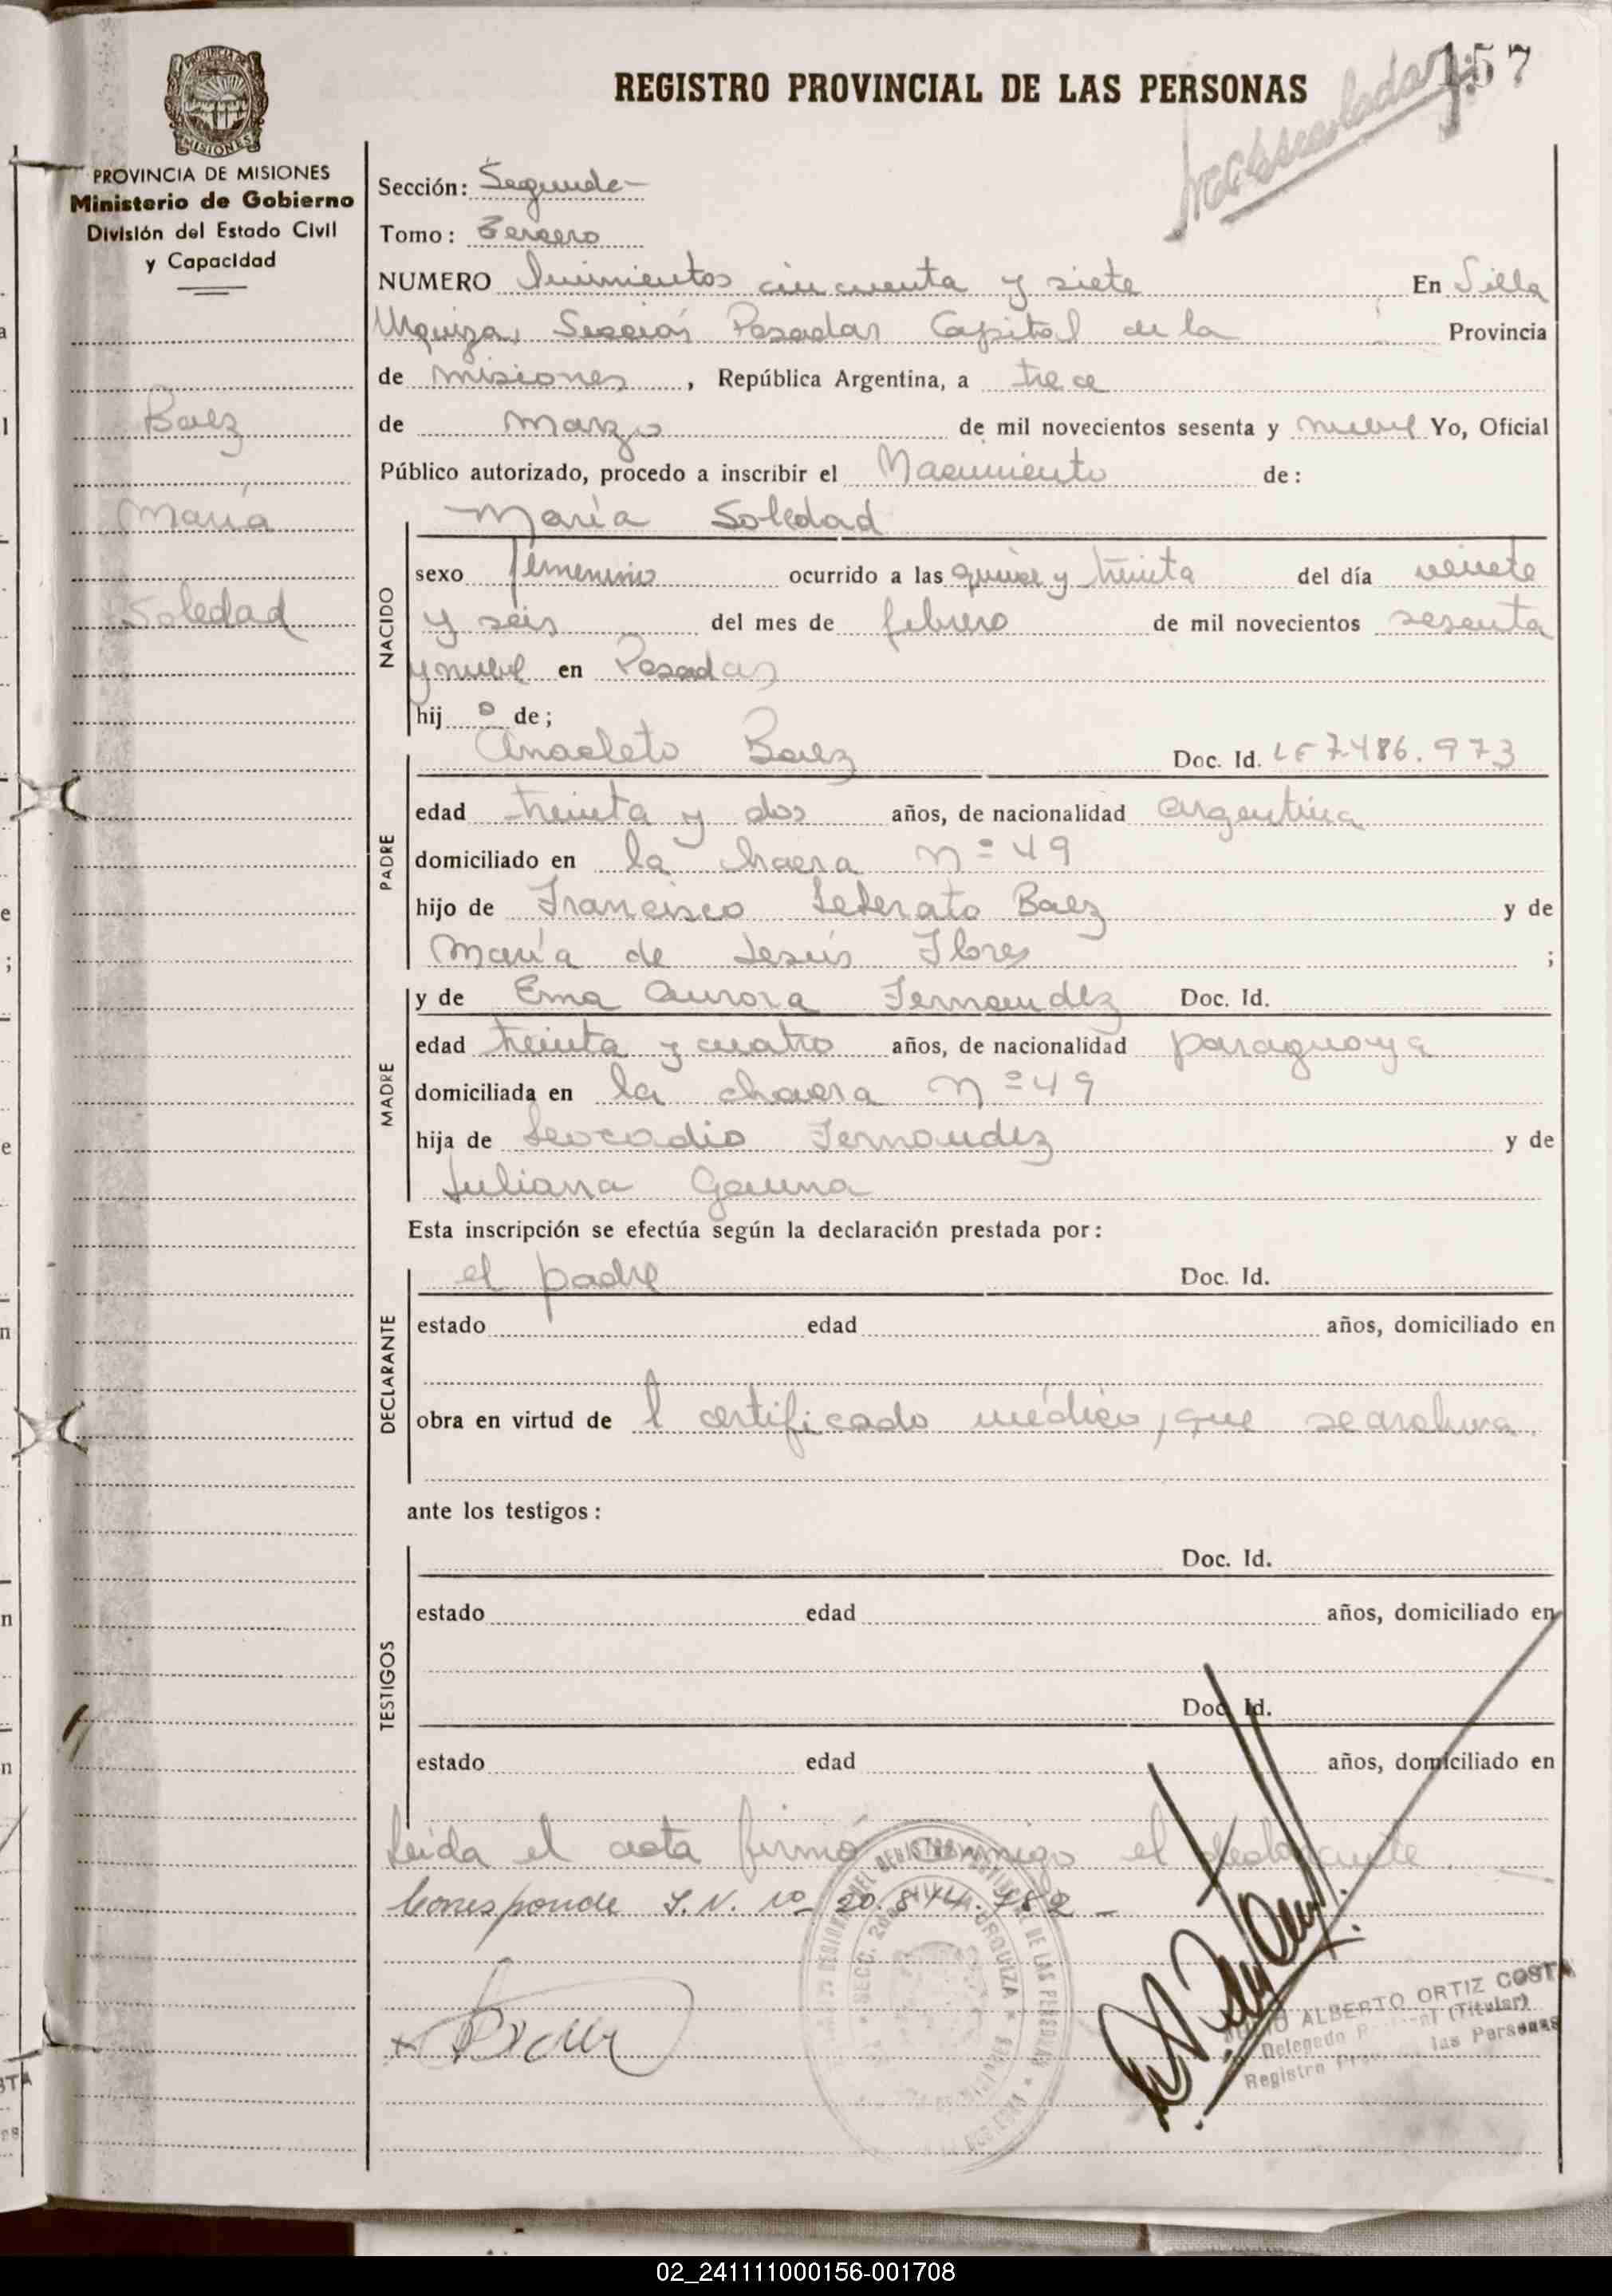 157
REGISTRO PROVINCIAL DE LAS PERSONAS
PROVINCIA DE MISIONES
MISIONES
PROVINCIA DE MISIONES
Ministerio de Gobierno
División del Estado Civil
y Capacidad
Baez
María
Soledad
Sección: Segunda-
Tomo: Tercero
NUMERO Quinientos cincuenta y siete En Villa
Urquiza, Sección Posadas Capital de la Provincia
de Misiones, República Argentina, a trece
de Marzo de mil novecientos sesenta y nueve Yo, Oficial
Público autorizado, procedo a inscribir el Nacimiento de:
María Soledad
NACIDO
sexo femenino ocurrido a las quince y treinta del día veinte
y seis del mes de febrero de mil novecientos sesenta
y nueve en Posadas
hij a de;
PADRE
Anacleto Baez Doc. Id. LE 7.486.973
edad treinta y dos años, de nacionalidad argentina
domiciliado en la chacra nº 49
hijo de Francisco Baez y de
María de Jesús Flores ;
MADRE
y de Ema Aurora Fernandez Doc. Id.
edad treinta y cuatro años, de nacionalidad paraguaya
domiciliada en la chacra nº 49
hija de Leocadio Fernandez y de
Juliana Gauna
Esta inscripción se efectúa según la declaración prestada por:
DECLARANTE
el padre Doc. Id.
estado edad años, domiciliado en
obra en virtud de l certificado médico, que se archiva.
ante los testigos:
TESTIGOS
Doc. Id.
estado edad años, domiciliado en
Doc. Id.
estado edad años, domiciliado en
Leída el acta firmó conmigo el declarante.
Corresponde I.N. Nº 20.844.782 -
ALBERTO ORTIZ COSTA
Delegado (Titular)
Registro las Personas
02_241111000156-001708